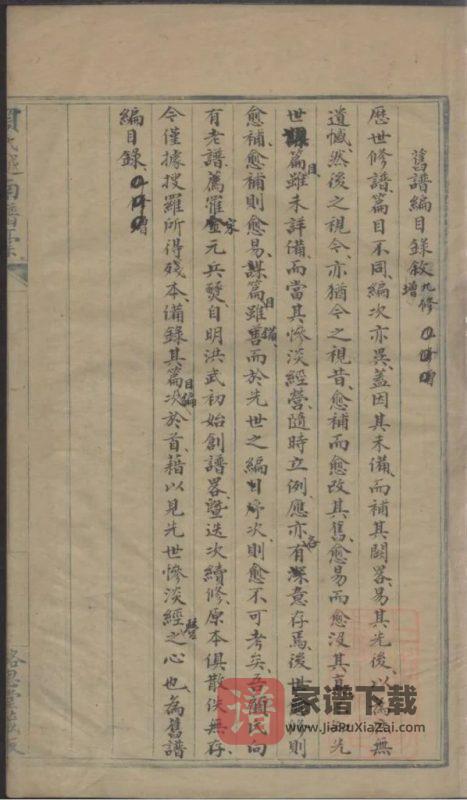 舊譜編目錄敘九修增
歷世修譜篇目不同編次亦異蓋因其未備而補其闕畧易其先後以無
遺憾然後之視今亦猶今之視昔愈補而愈改其舊愈易而愈沒其真先
世篇目雖未詳備而當其慘淡經營隨時立例應亦各有深意存焉後世則
愈補愈補則愈易篇目雖備而於先世之編目序次則愈不可考矣吾氏向
有老譜薦罹宋元兵燹自明洪武初始創譜畧暨迭次續修原本俱散佚無存
今僅據搜羅所得殘本備錄其篇目編次於首藉以見先世慘淡經營之心也為舊譜
編目錄
家谱下载
www.JiaPuXiaZai.com
谱